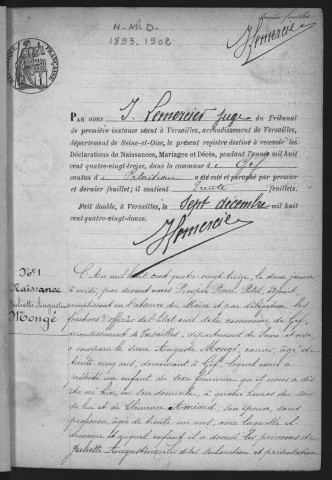 N-M-D.
1893-1902
Premier feuillet
Hemercier
PAR NOUS J. Lemercier Juge du Tribunal
de première instance séant à Versailles, arrondissement de Versailles,
département de Seine-et-Oise, le présent registre destiné à recevoir les
Déclarations de Naissances, Mariages et Décès, pendant l'année mil huit
cent quatre-vingt-treize, dans la commune de Gif
canton de Palaiseau a été coté et paraphé par premier
et dernier feuillet; il contient trente feuillets.
Fait double, à Versailles, le Sept décembre mil huit
cent quatre-vingt-douze.
N° 1
Naissance
Juliette Augustine
Mongé
L'An mil huit cent quatre-vingt treize, le deux janvier
à midi par devant nous Pierre Petit, adjoint,
remplissant en l'absence du Maire et par délégation les
fonctions d'officier de l'Etat civil de la commune de Gif,
arrondissement de Versailles, département de Seine et Oise
a comparu le sieur Auguste Mongé, carrier, âgé de
trente cinq ans, domicilié à Gif, lequel nous a
présenté un enfant du sexe féminin qu'il nous a dit
être né hier, en son domicile, à quatre heures du soir
de lui et de Clémence Amiard, son épouse, sans
profession, âgée de trente un ans, avec laquelle il
demeure et auquel enfant il a donné les prénoms de
Juliette Augustine. Les dites déclaration et présentation